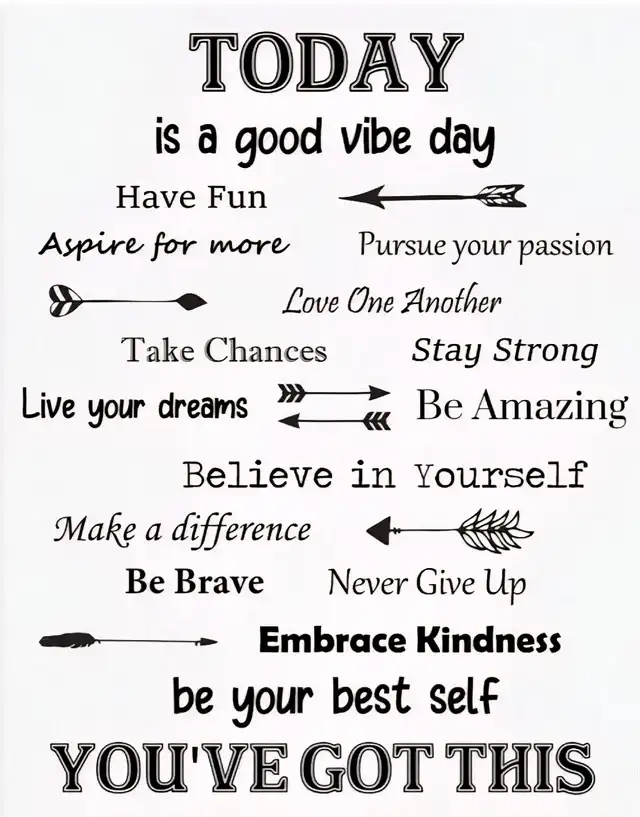 TODAY
is a good vibe day
Have Fun
Aspire for more Pursue your passion
Love One Another
Take Chances Stay Strong
Live your dreams Be Amazing
Believe in Yourself
Make a difference
Be Brave Never Give Up
Embrace Kindness
be your best self
YOU'VE GOT THIS